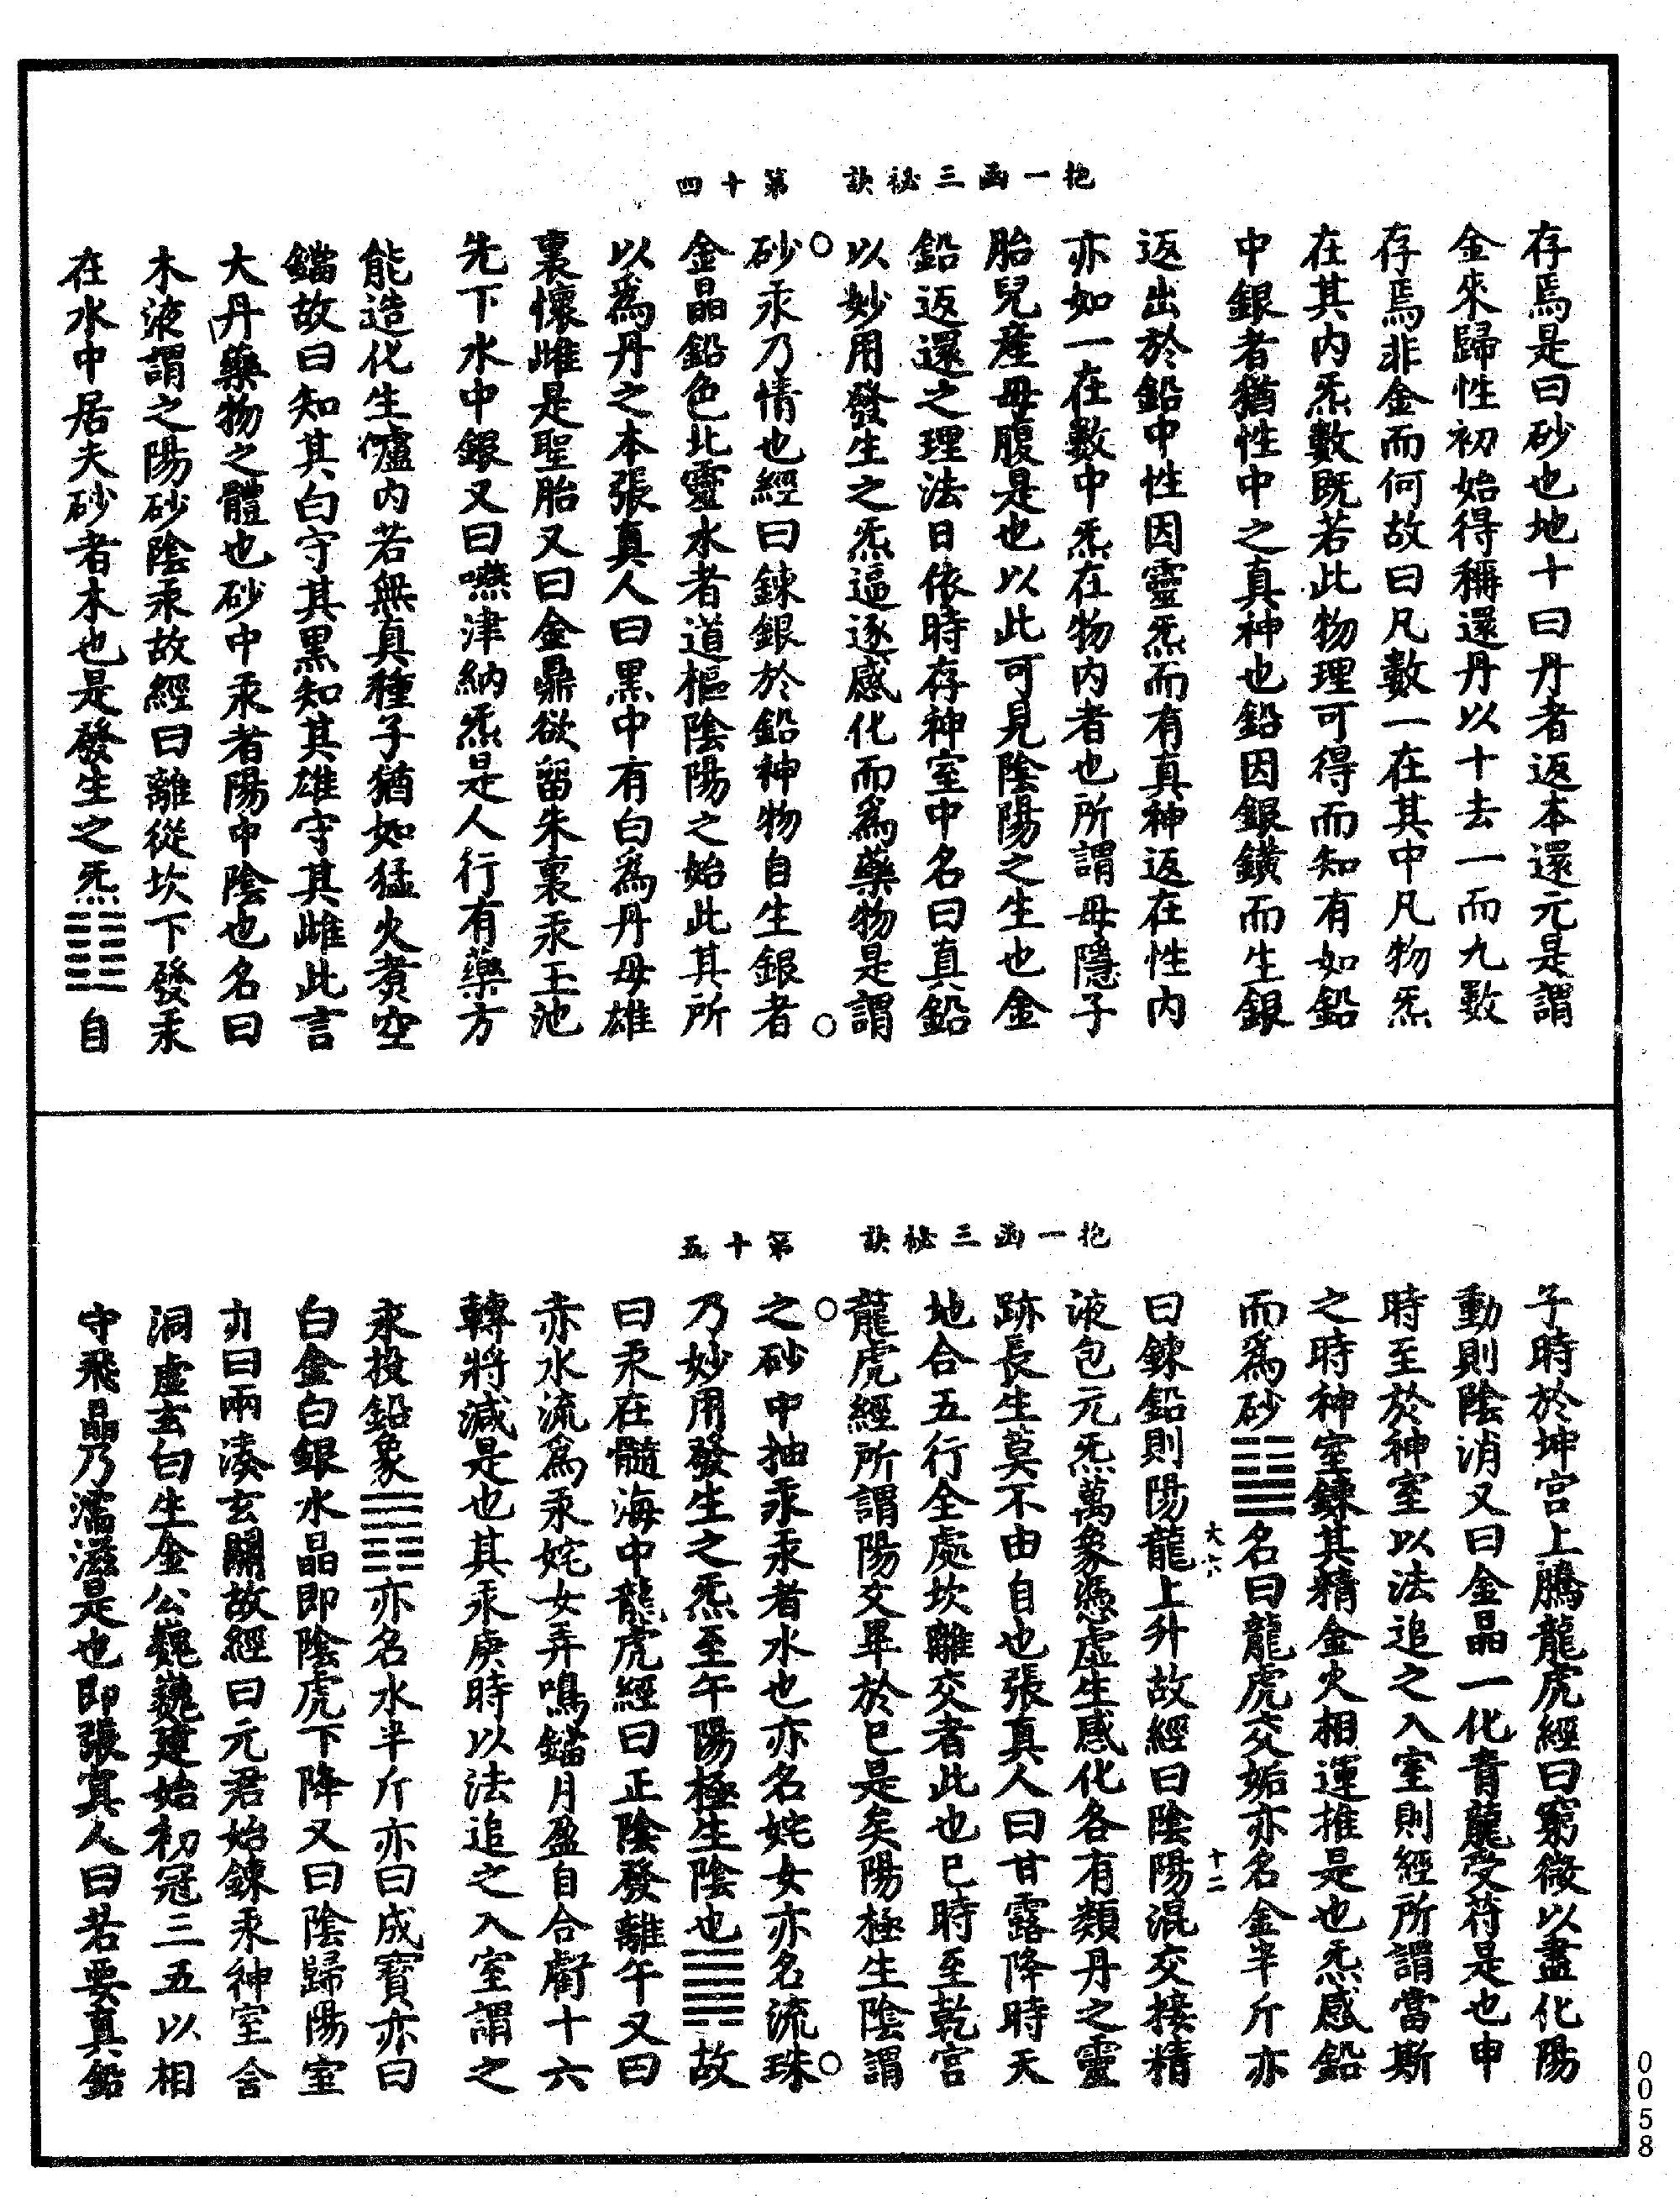 抱一函三祕訣　第十四
存焉是曰砂也地十曰丹者返本還元是謂
金來歸性初始得稱還丹以十去一而九數
存焉非金而何故曰凡數一在其中凡物炁
在其內炁數既若此物理可得而知有如鉛
中銀者猶性中之真神也鉛因銀鑛而生銀
返出於鉛中性因靈炁而有真神返在性內
亦如一在數中炁在物內者也所謂母隱子
胎兒產母腹是也以此可見陰陽之生也金
鉛返還之理法日依時存神室中名曰真鉛
以妙用發生之炁逼逐感化而為藥物是謂
砂汞乃情也經曰鍊銀於鉛神物自生銀者
金晶鉛色北靈水者道樞陰陽之始此其所
以為丹之本張真人曰黑中有白為丹母雄
裏懷雌是聖胎又曰金鼎欲留朱裏汞玉池
先下水中銀又曰嚥津納炁是人行有藥方
能造化生爐內若無真種子猶如猛火煑空
鐺故曰知其白守其黑知其雄守其雌此言
大丹藥物之體也砂中汞者陽中陰也名曰
木液謂之陽砂陰汞故經曰離從坎下發汞
在水中居夫砂者木也是發生之炁䷗自
抱一函三祕訣　第十五
子時於坤宮上騰龍虎經曰窮微以盡化陽
動則陰消又曰金晶一化青龍受符是也申
時至於神室以法追之入室則經所謂當斯
之時神室鍊其精金火相運推是也炁感鉛
而為砂䷍名曰龍虎交姤亦名金半斤亦
曰鍊鉛則陽龍上升故經曰陰陽混交接精
大六
十二
液包元炁萬象憑虛生感化各有類丹之靈
跡長生莫不由自也張真人曰甘露降時天
地合五行全處坎離交者此也巳時至乾宮
龍虎經所謂陽交畢於巳是矣陽極生陰謂
之砂中抽汞汞者水也亦名姹女亦名流珠
乃妙用發生之炁至午陽極生陰也䷫故
曰汞在髓海中龍虎經曰正陰發離午又曰
赤水流為汞姹女弄鳴鐺月盈自合虧十六
轉將減是也其汞庚時以法追之入室謂之
汞投鉛象䷋亦名水半斤亦曰成寶亦曰
白金白銀水晶即陰虎下降又曰陰歸陽室
亦曰兩湊玄關故經曰元君始鍊汞神室含
洞虛玄白生金公巍巍建始初冠三五以相
守飛晶乃濡滋是也即張真人曰若要真鉛
0058